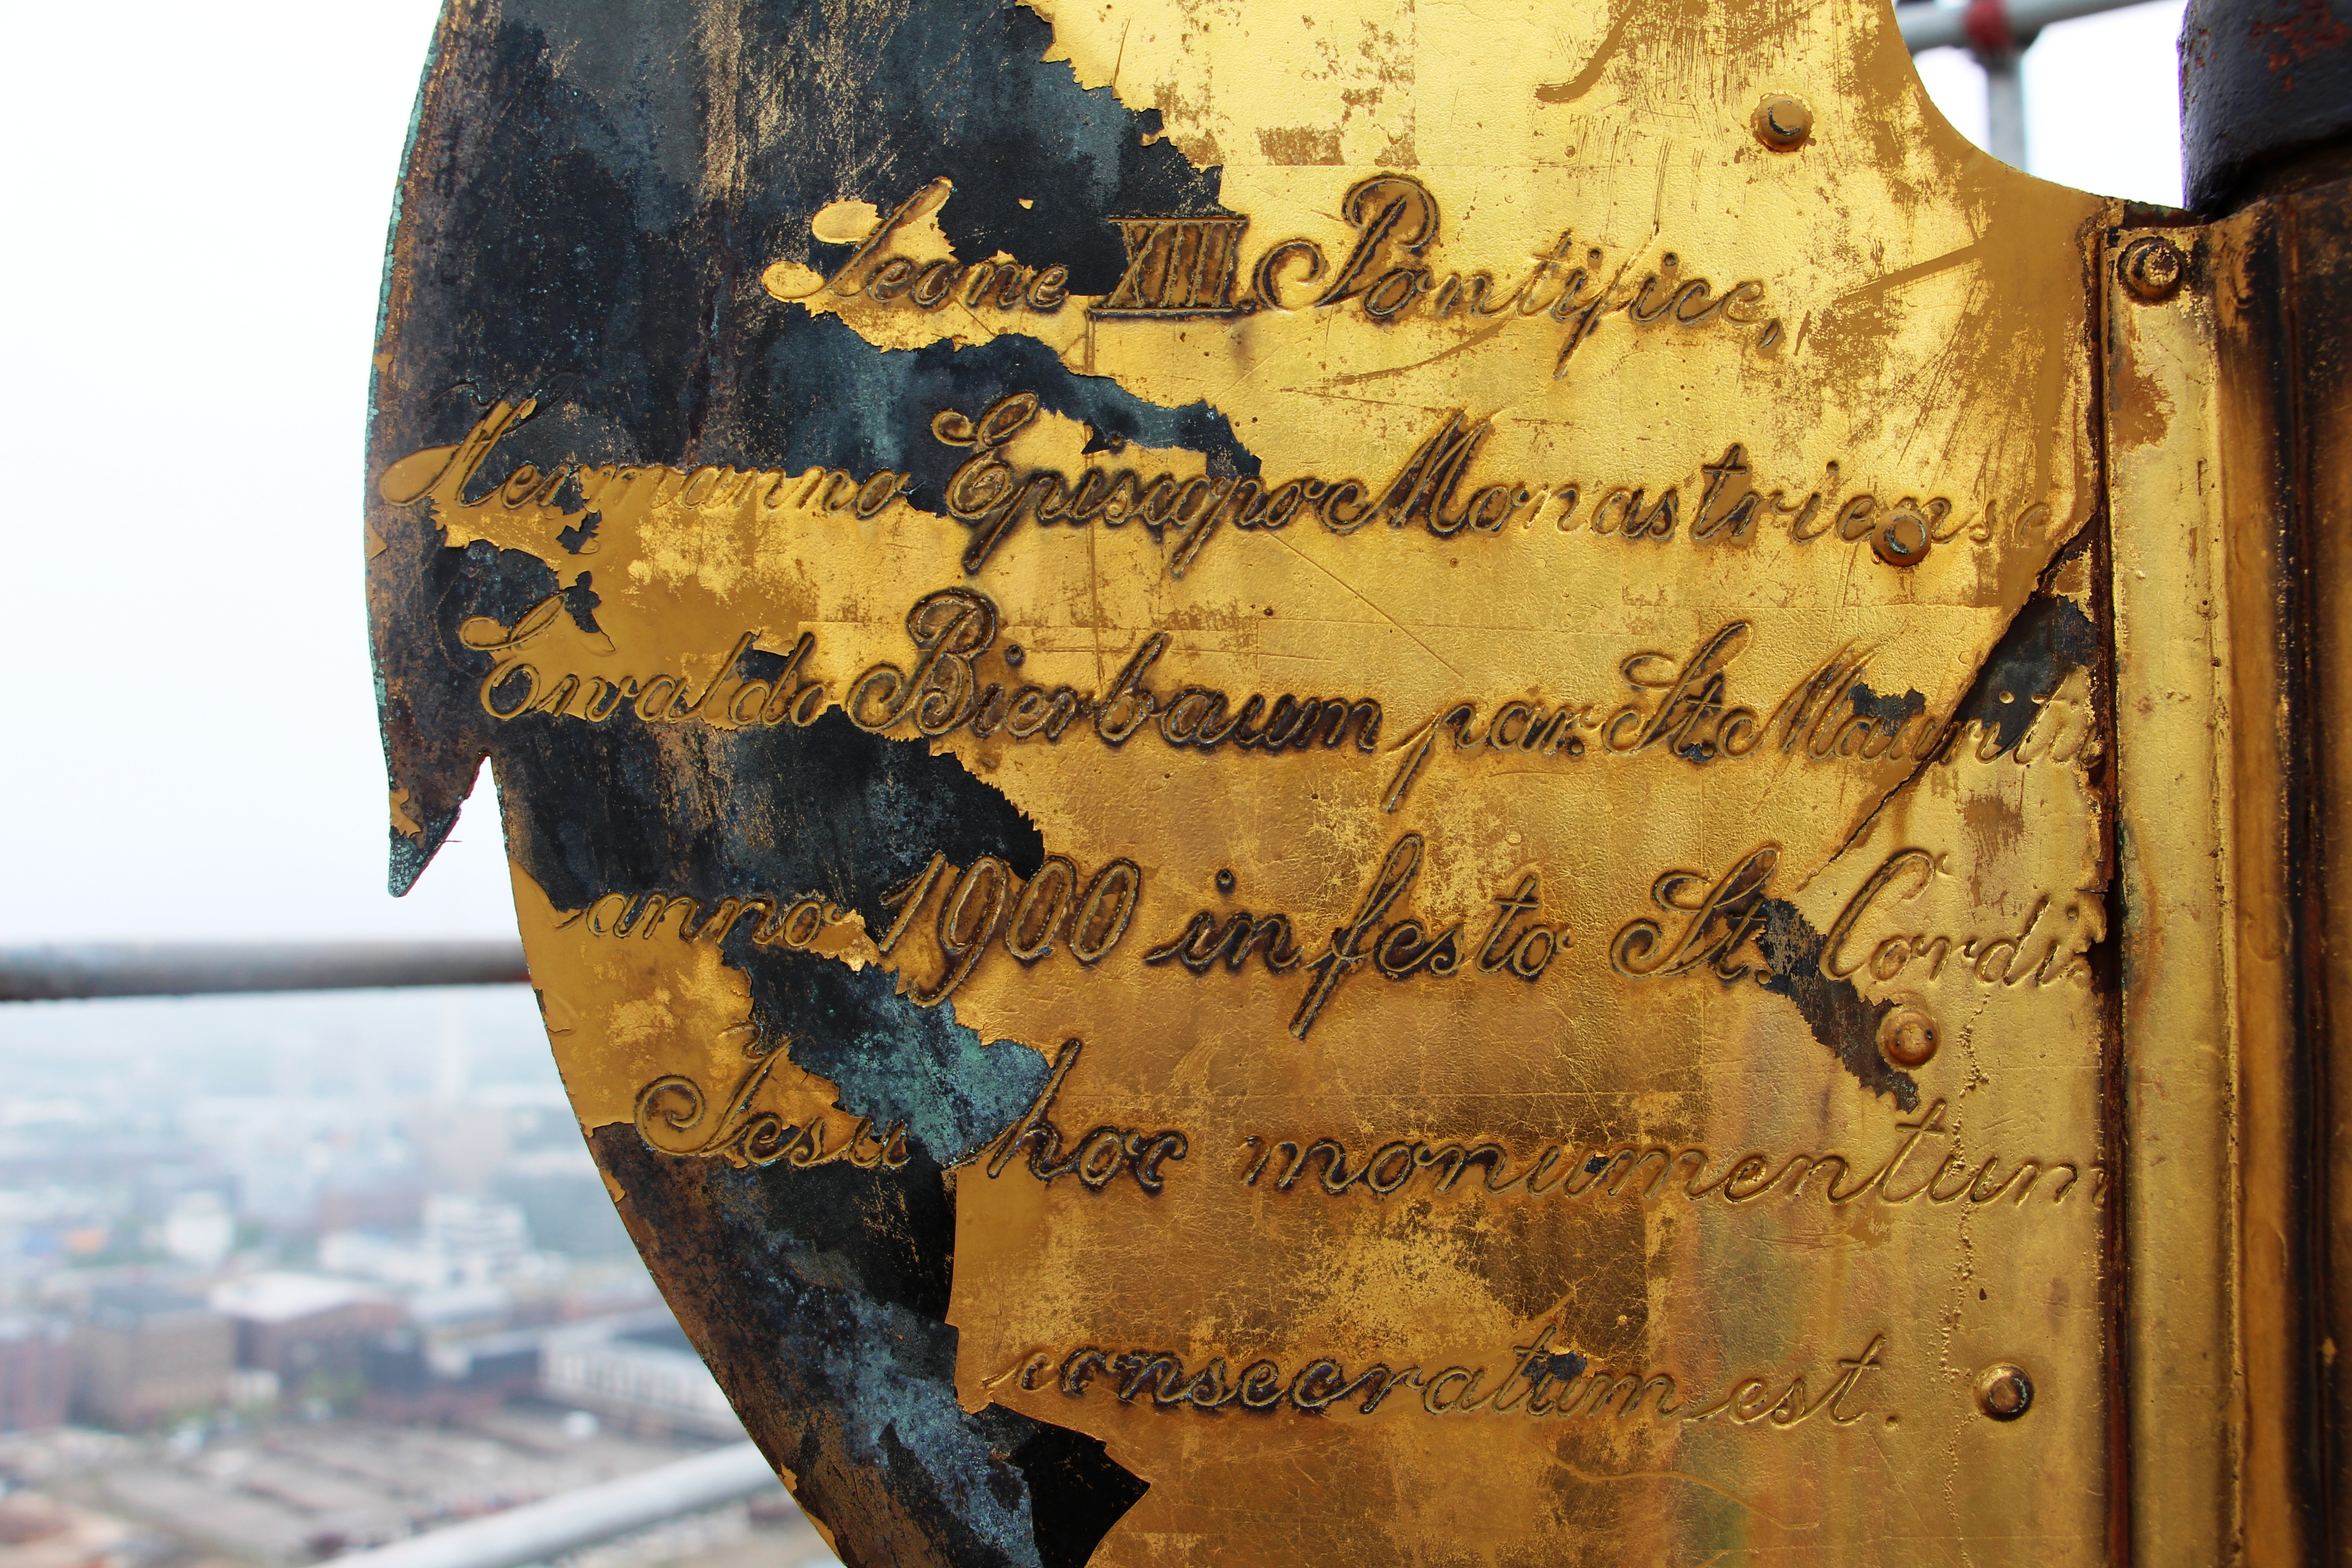 Leone XIII. Pontifice,
Hermanno Episcopo Monastriense
Ewaldo Bierbaum par. St. Mauritii
anno 1900 in festo St. Cordis
Jesu hoc monumentum
consecratum est.